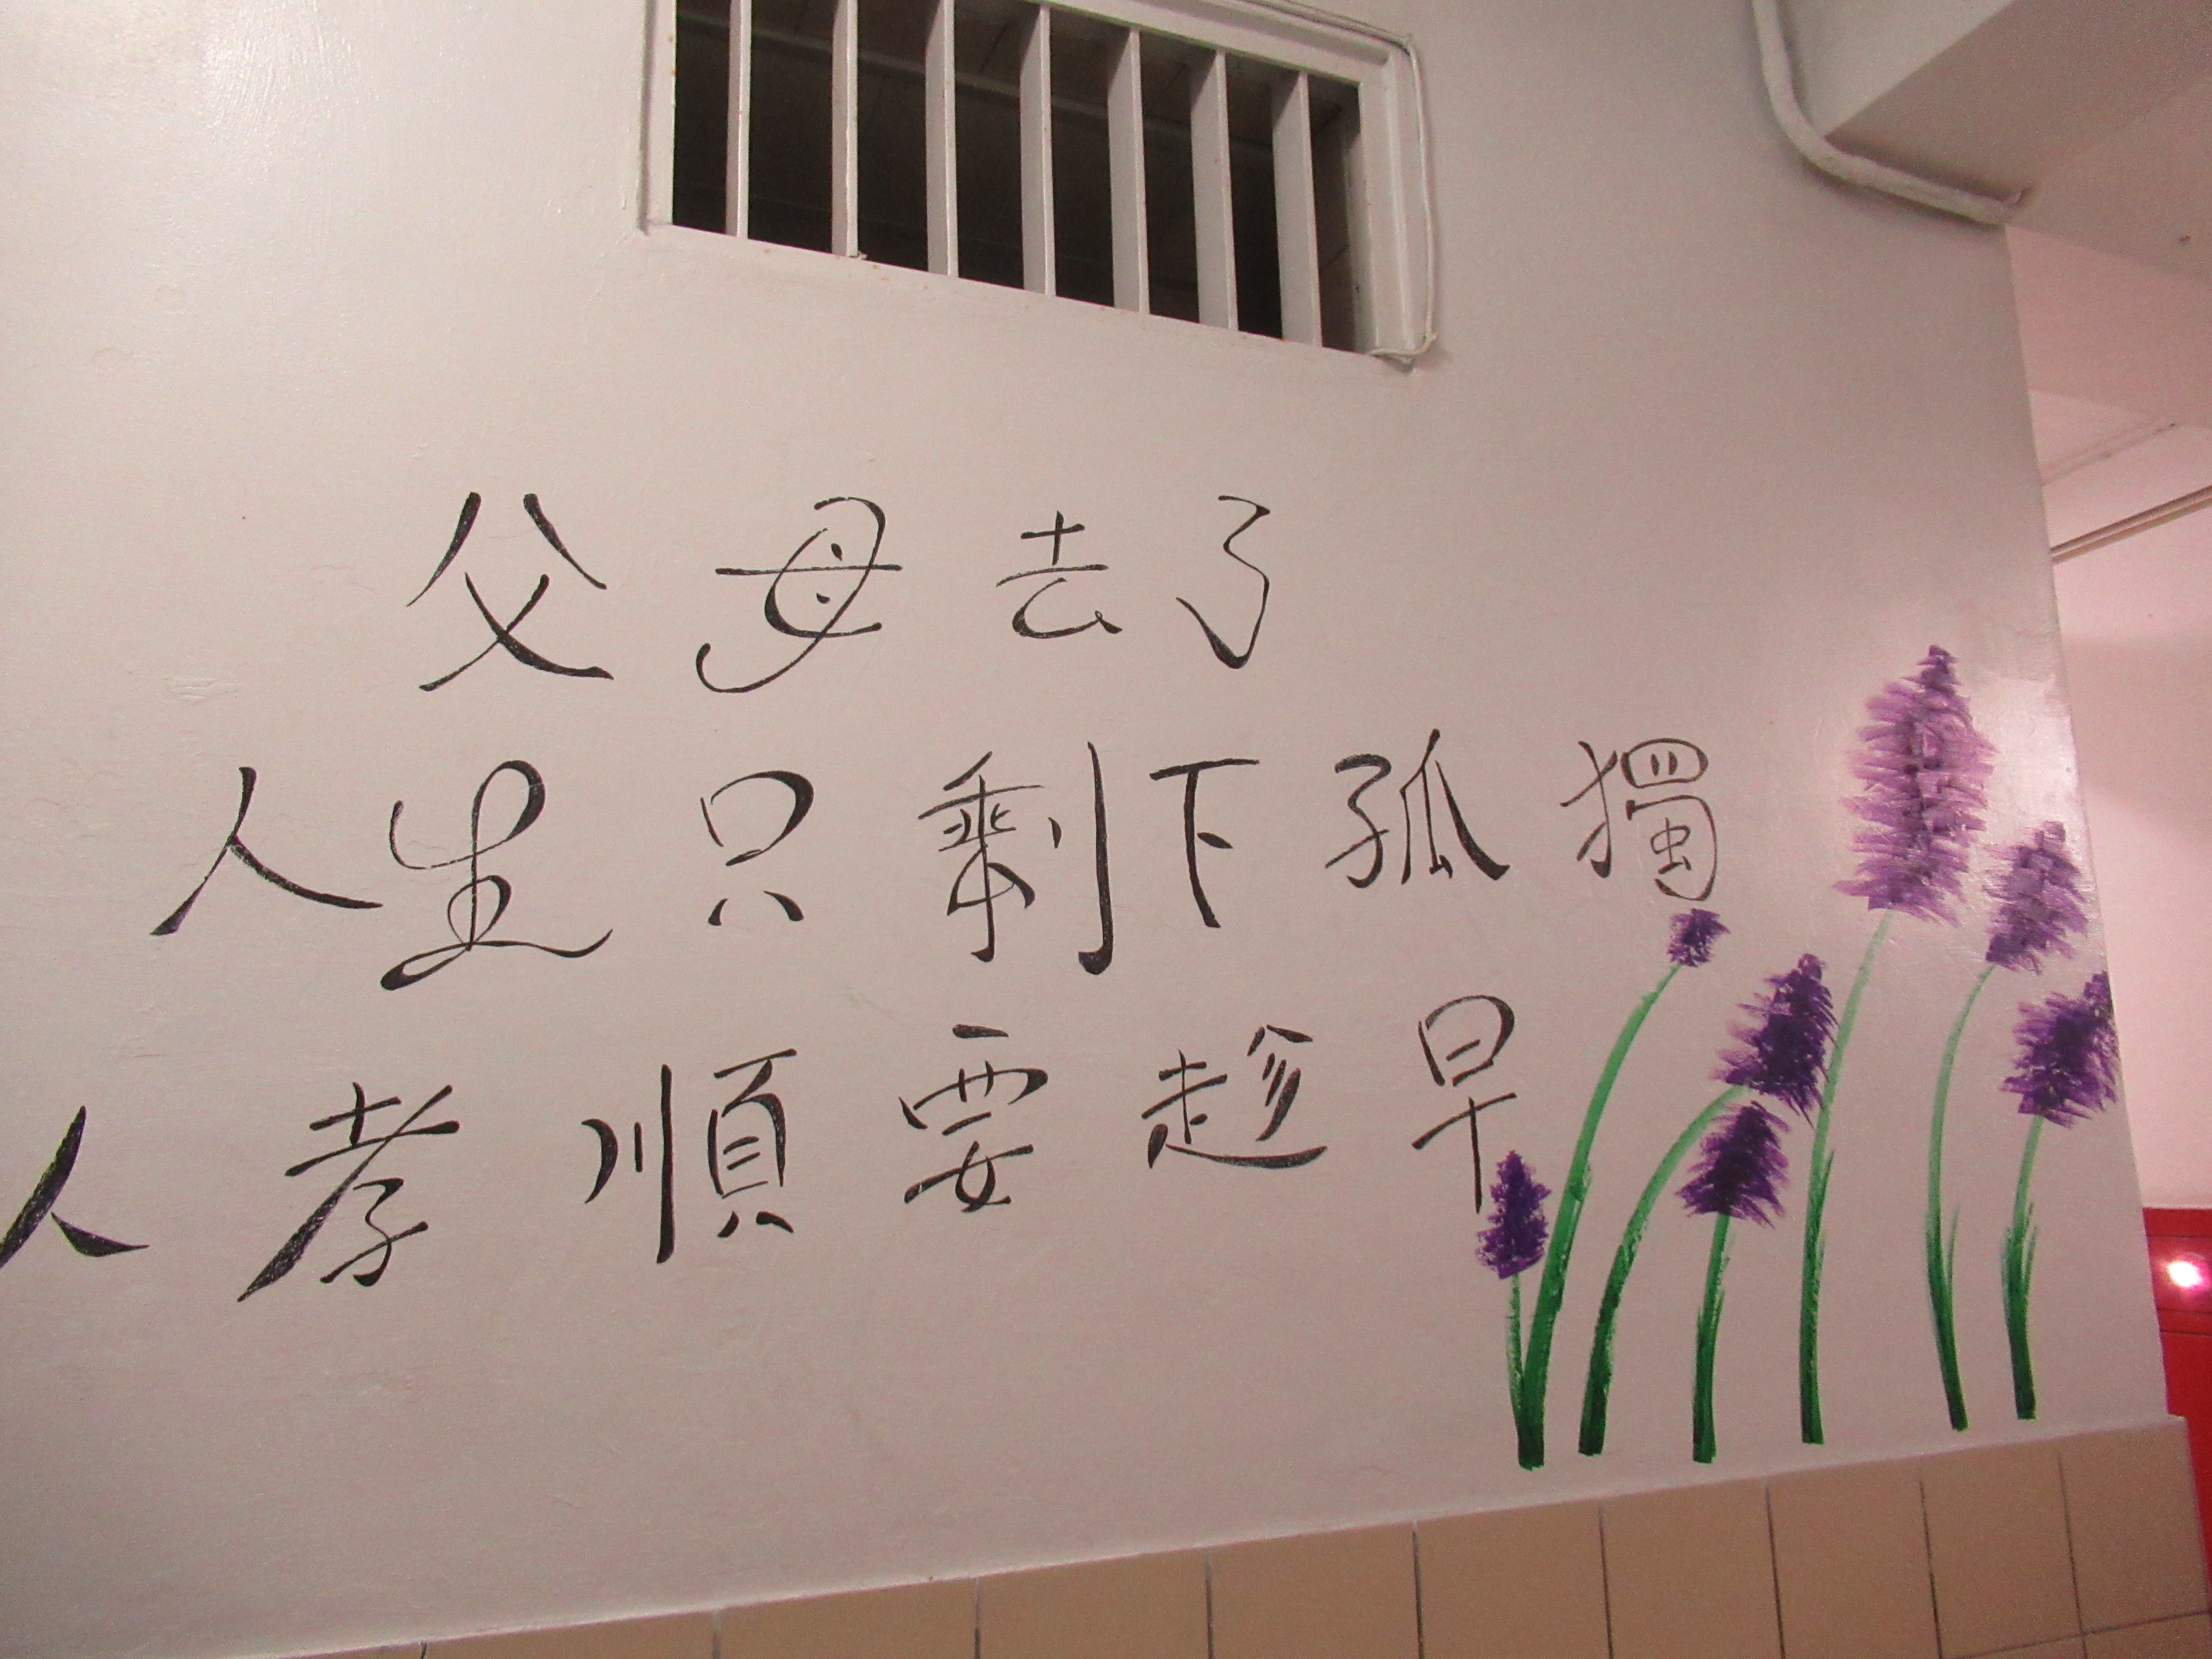 父母去了
人生只剩下孤獨
人孝順要趁早